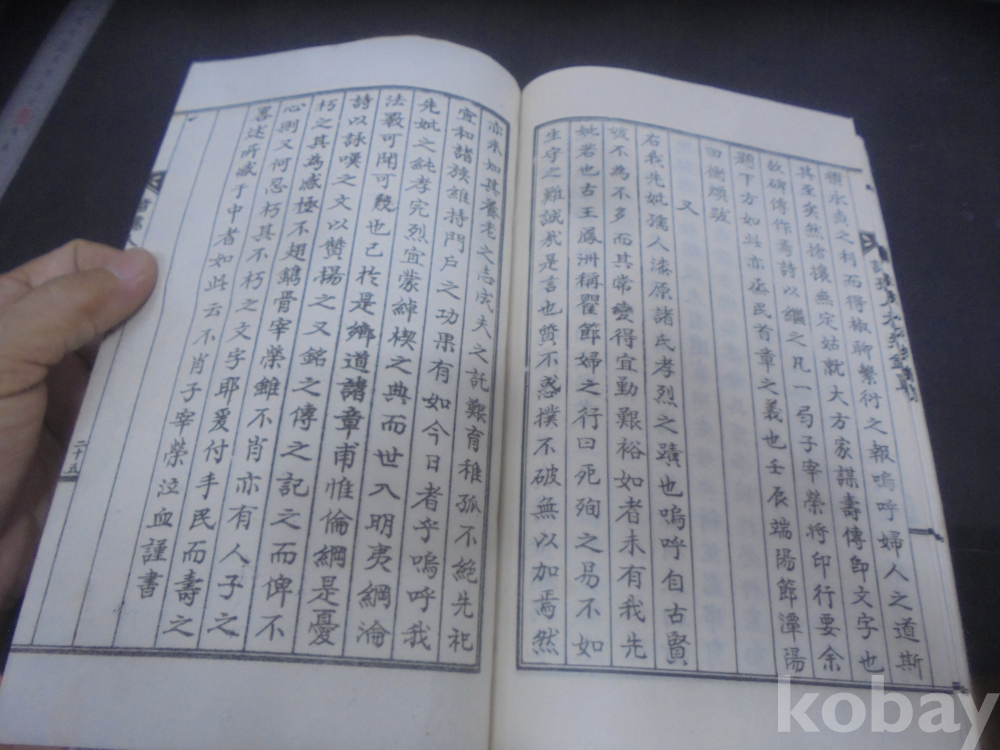 永貞之利而得椒聊繁衍之報嗚呼婦人之道斯
其至矣然搶攘無定姑就大方家謀壽傳卽文字也
故碑傳作焉詩以繼之凡一局子宰榮將印行要余
題下方如此亦烝民首章之義也壬辰端陽節潭陽
田衡鎭跋
又
右我先妣孺人漆原諸氏孝烈之蹟也嗚呼自古賢
媛不為不多而其常變得宜勤艱裕如者未有我先
妣若也古王鳳洲稱瞿節婦之行曰死殉之易不如
生守之難誠哉是言也贊不惑撲不破無以加焉然
亦未如其養老之志成夫之託艱育稚孤不絕先祀
宜和諸族維持門戶之功果有如今日者乎嗚呼我
先妣之純孝完烈宜蒙綽楔之典而世入明夷綱淪
法斁可閒可兢也已於是鄉道諸章甫惟倫綱是憂
詩以詠嘆之文以贊揚之又銘之傳之記之而俾不
朽之其為感極不翅鐫骨宰榮雖不肖亦有人子之
心則又何忍朽其不朽之文字耶爰付手民而壽之
畧述所感于中者如此云不肖子宰榮泣血謹書
二十五
kobay